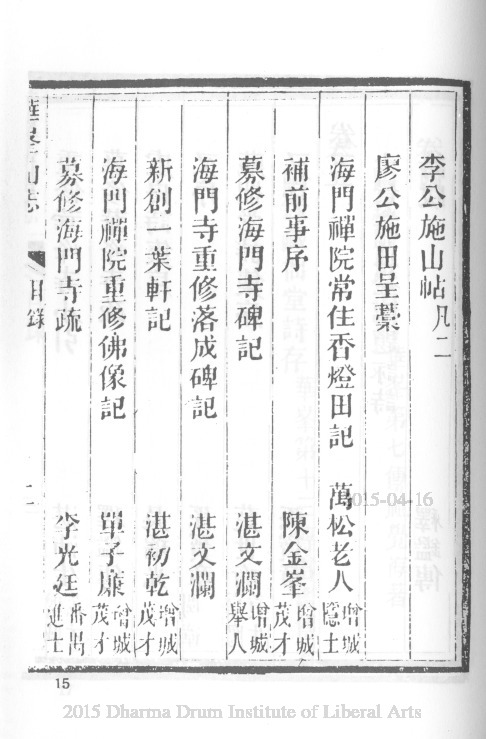 李公施山帖凡二
廖公施田呈藁
海門禪院常住香燈田記 萬松老人 增城隱士
補前事序 陳金峯 增城茂才
募修海門寺碑記 湛文瀾 增城舉人
海門寺重修落成碑記 湛文瀾
新創一葉軒記 湛初乾 增城茂才
海門禪院重修佛像記 單子廉 增城茂才
募修海門寺疏 李光廷 番禺進士
山志 目錄 二
15
015-04-16
2015 Dharma Drum Institute of Liberal Arts